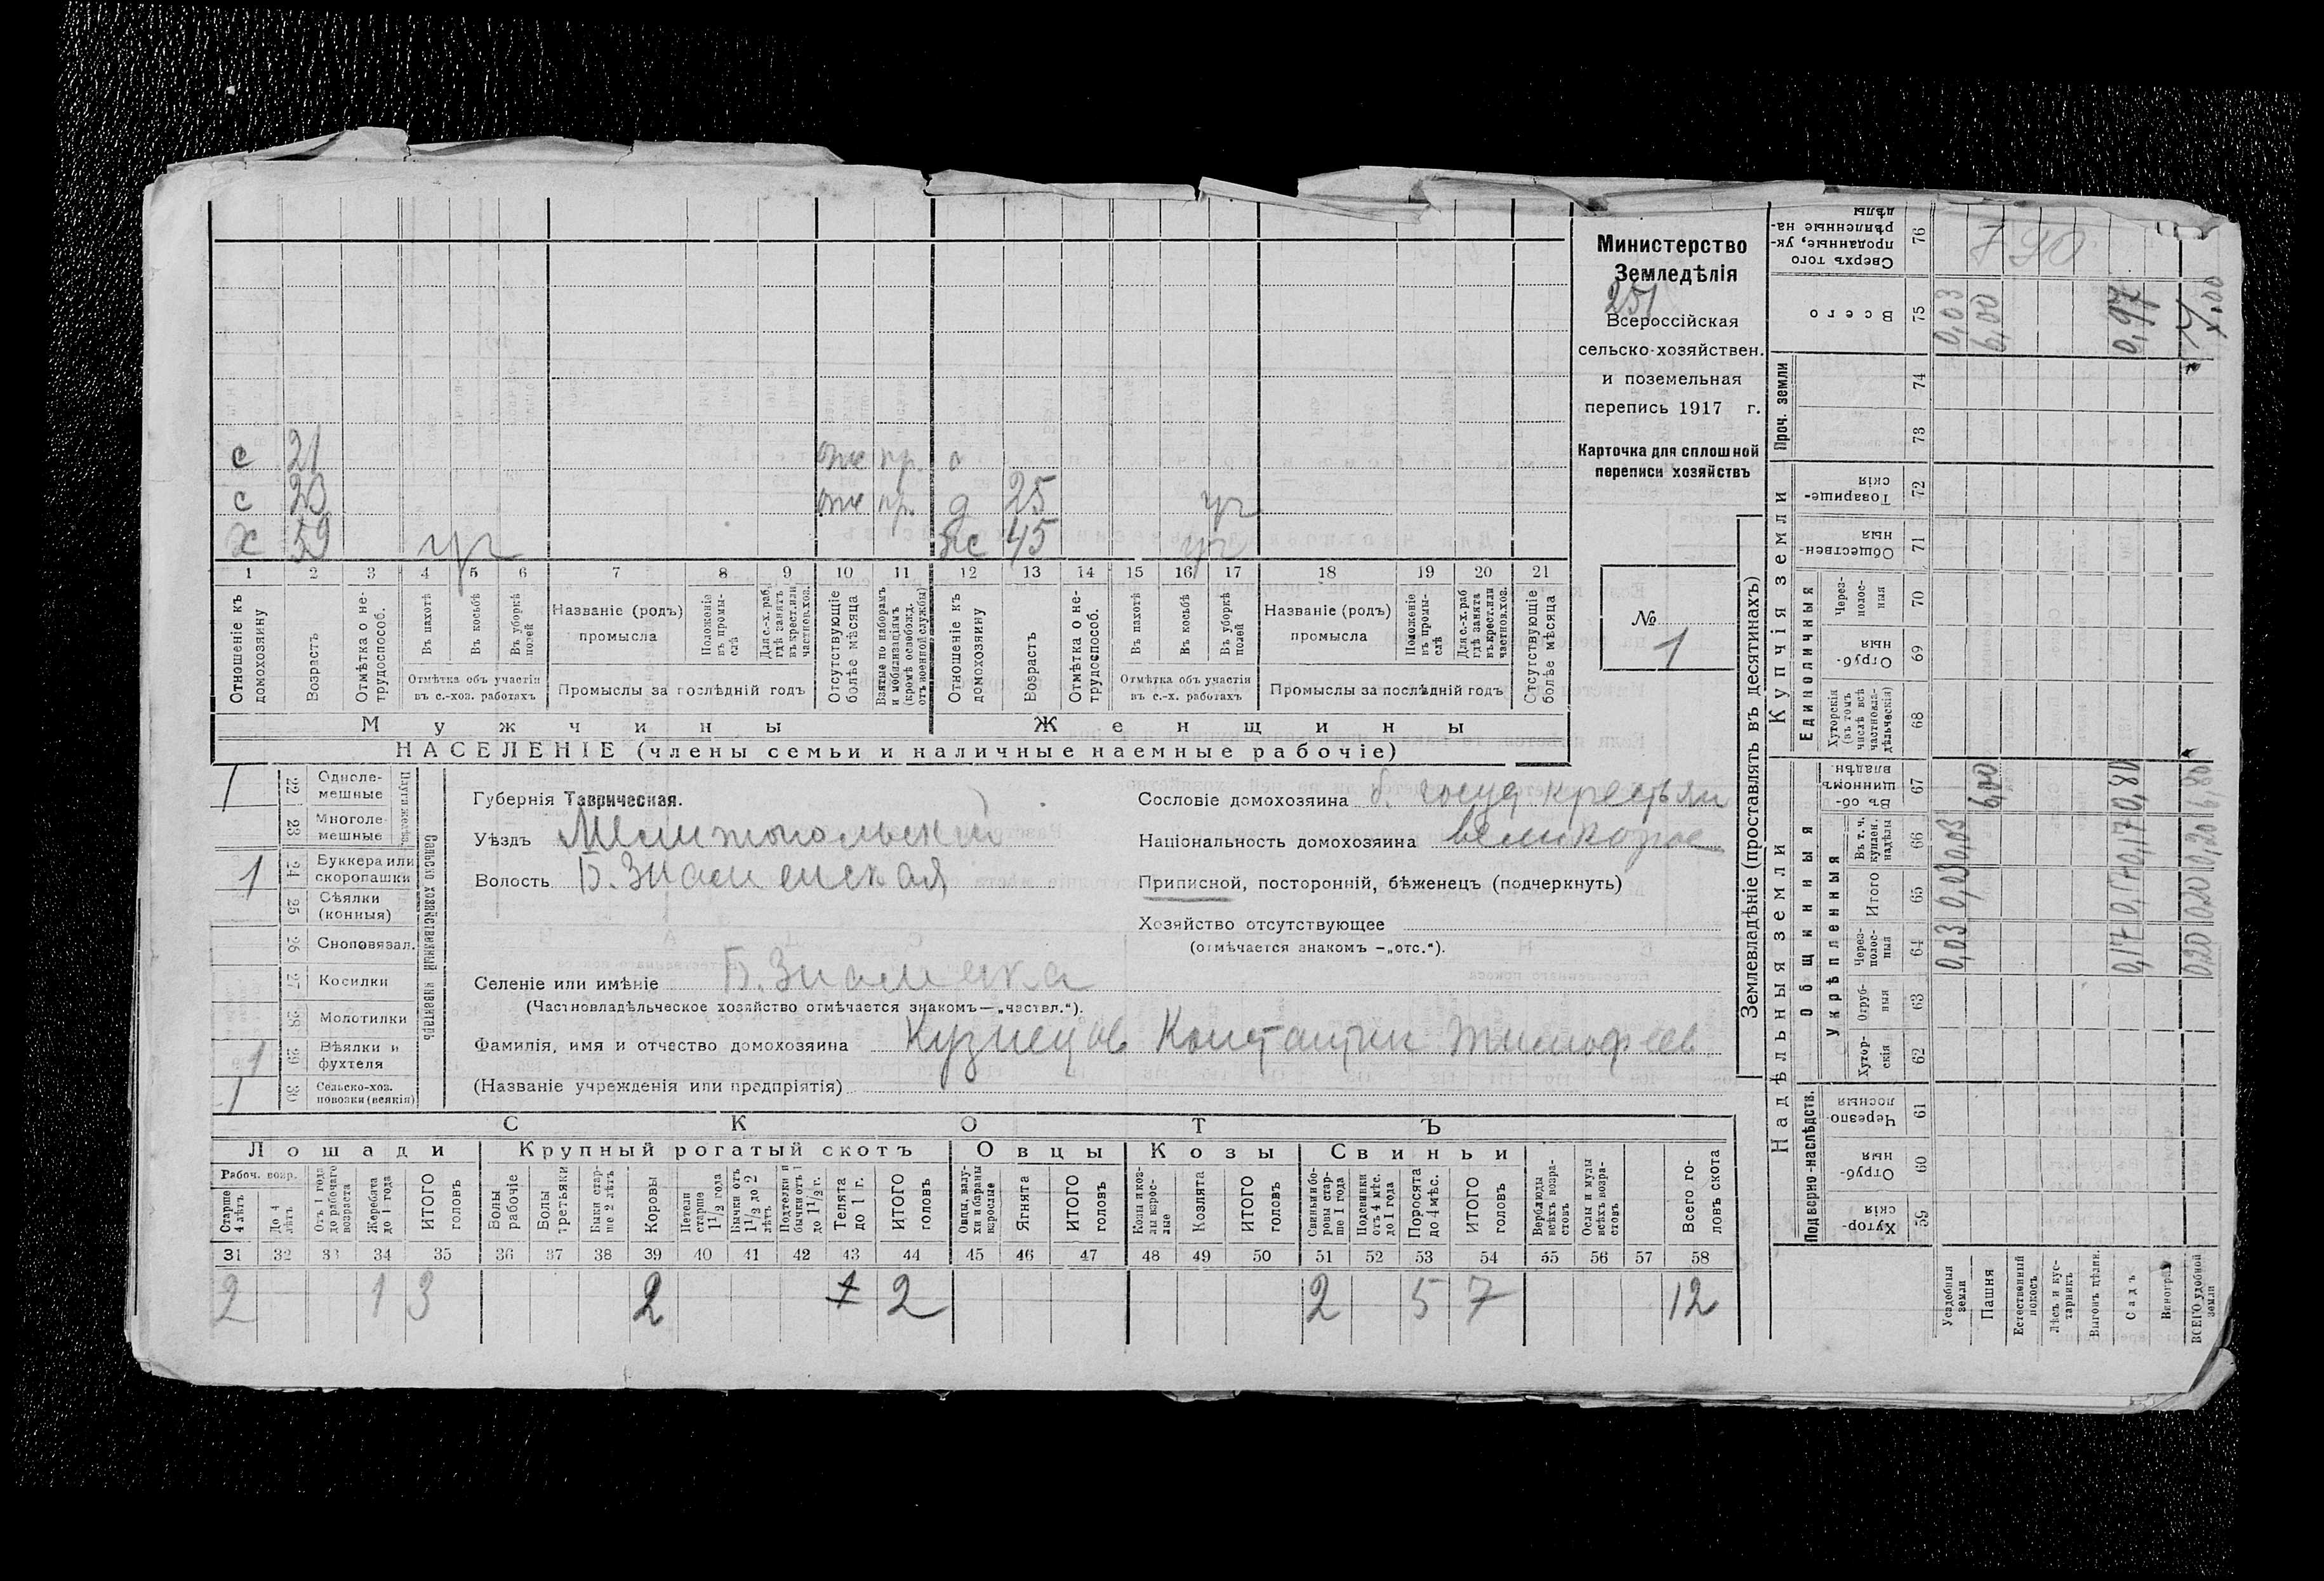 Министерство
Земледѣлія
251
Всероссійская
сельско-хозяйствен.
и поземельная
перепись 1917 г.
Карточка для сплошной
переписи хозяйствъ
№
1
с 21 отс пр. о
с 20 отс пр. д 25 уч
х 59 уч жс 45 уч
1 2 3 4 5 6 7 8 9 10 11 12 13 14 15 16 17 18 19 20 21
Отношеніе къ домохозяину
Возрастъ
Отмѣтка о не-трудоспособ.
Въ пахотѣ
Въ косьбѣ
Въ уборкѣ полей
Отмѣтка объ участіи
въ с.-хоз. работахъ
Названіе (родъ)
промысла
Положеніе въ промы-слѣ
Для с.-х. раб. гдѣ занятъ въ крест. или частнов. хоз.
Промыслы за послѣдній годъ
Отсутствующіе болѣе мѣсяца
Взятые по наборамъ и мобилизаціямъ (кромѣ освобожд. отъ военной службы)
Отношеніе къ домохозяину
Возрастъ
Отмѣтка о не-трудоспособ.
Въ пахотѣ
Въ косьбѣ
Въ уборкѣ полей
Отмѣтка объ участіи
въ с.-х. работахъ
Названіе (родъ)
промысла
Положеніе въ промы-слѣ
Для с.-х. раб гдѣ занята въ крест. или частнов. хоз.
Промыслы за послѣдній годъ
Отсутствующіе болѣе мѣсяца
Мужчины Женщины
НАСЕЛЕНІЕ (члены семьи и наличные наемные рабочіе)
Сельско хозяйственный инвентарь
Плуги желѣзн.
1 22 Одноле-мешные
23 Многоле-мешные
1 24 Буккера или скоропашки
25 Сѣялки (конныя)
26 Сноповязал.
27 Косилки
28 Молотилки
1 29 Вѣялки и фухтеля
1 30 Сельско-хоз. повозки (всякія)
Губернія Таврическая.
Уѣздъ Мелитопольский
Волость Б. Знаменская
Сословіе домохозяина б. госуд. крестьян
Національность домохозяина великорос
Приписной, посторонній, бѣженецъ (подчеркнуть)
Хозяйство отсутствующее
(отмѣчается знакомъ —„отс.“).
Селеніе или имѣніе Б. Знаменка
(Частновладѣльческое хозяйство отмѣчается знакомъ—„частвл.“).
Фамилія, имя и отчество домохозяина Кузнецов Константин Тимофеев
(Названіе учрежденія или предпріятія)
СКОТЪ
Лошади Крупный рогатый скотъ Овцы Козы Свиньи
Рабоч. возр.
Старше 4 лѣтъ
До 4 лѣтъ
Отъ 1 года до рабочаго возраста
Жеребята до 1 года
ИТОГО головъ
Волы рабочіе
Волы третьяки
Быки стар-ше 2 лѣтъ
Коровы
Нетели старше 1 1/2 года
Бычки отъ 1 1/2 до 2 лѣтъ
Подтелки и бычки отъ 1 до 1 1/2 г.
Телята до 1 г.
ИТОГО головъ
Овцы, валу-хи и бараны взрослые
Ягнята
ИТОГО головъ
Козы и коз-лы взрос-лые
Козлята
ИТОГО головъ
Свиньи и бо-ровы стар-ше 1 года
Подсвинки отъ 4 мѣс. до 1 года
Поросята до 4 мѣс.
ИТОГО головъ
Верблюды всѣхъ возра-стовъ
Ослы и мулы всѣхъ возра-стовъ
Всего го-ловъ скота
31 32 33 34 35 36 37 38 39 40 41 42 43 44 45 46 47 48 49 50 51 52 53 54 55 56 57 58
2 1 3 2 1 2 2 5 7 12
Землевладѣніе (проставлять въ десятинахъ)
Надѣльныя земли
Купчія земли
Проч. земли
Подворно-наслѣдств.
Общинныя
Укрѣпленныя
Единоличныя
Хутор-скія 59
Отруб-ныя 60
Черезпо-лосныя 61
Хутор-скія 62
Отруб-ныя 63
Через-полос-ныя 64
Итого 65
Въ т. ч. куплен. надѣлы 66
Въ об-щинномъ владѣн. 67
Хуторскія (въ томъ числѣ всѣ частновла-дѣльческія) 68
Отруб-ныя 69
Через-полос-ныя 70
Обществен-ныя 71
Товарище-скія 72
73
74
Всего 75
Сверхъ того проданные, ук-рѣпленные на-дѣлы 76
Усадебныя земли 0,03 0,03 0,03 0,03
Пашня 6,00 6,00
Естественный покосъ
Лѣсъ и кус-тарникъ
Выгонъ цѣлин.
Садъ 0,17 0,17 0,17 0,80 0,97
Виноград
ВСЕГО удобной земли 0,20 0,20 0,20 6,80 7,00
790